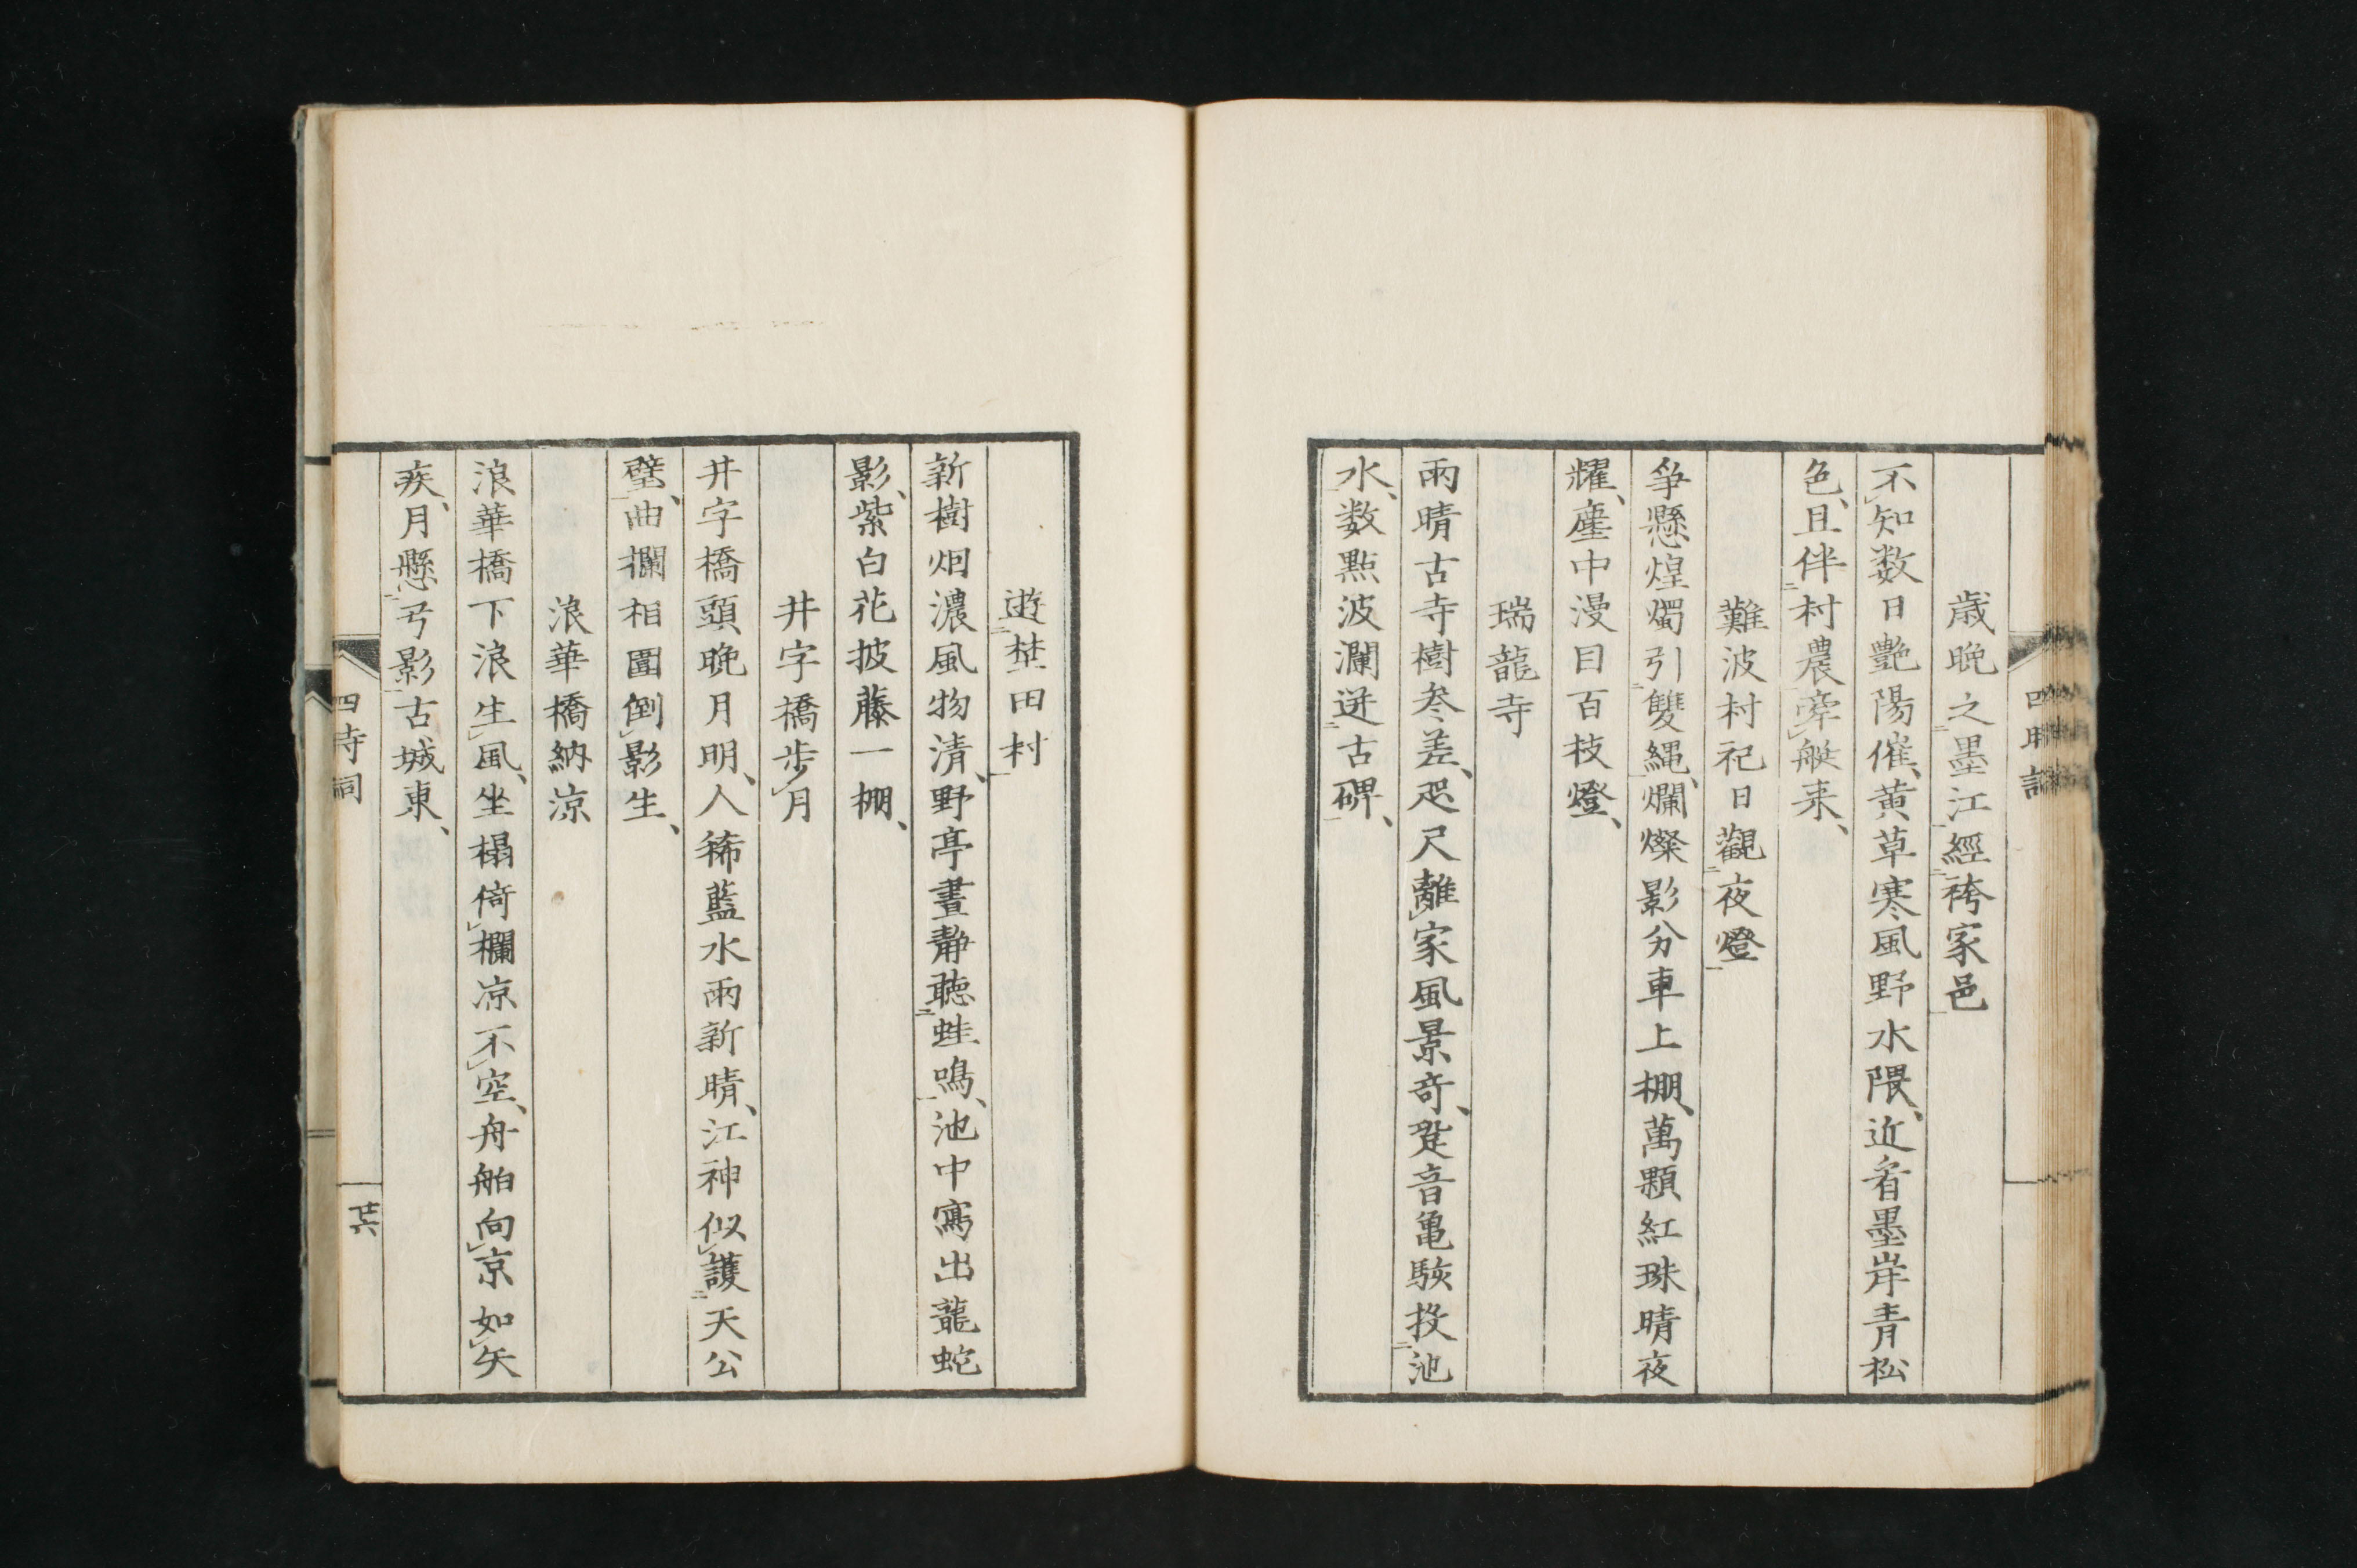 歳晩之墨江經袴家邑
不知数日艶陽催、黄草寒風野水隈、近看墨岸青松
色、且伴村農牽艇来、
難波村祀日觀夜燈
争懸煌燭引雙縄、爛燦影分車上棚、萬顆紅珠晴夜
耀、塵中漫目百枝燈、
瑞龍寺
雨晴古寺樹参差、咫尺離家風景奇、跫音亀駭投池
水、数點波瀾迸古碑、
遊埜田村
新樹烟濃風物清、野亭晝静聴蛙鳴、池中寫出龍蛇
影、紫白花披藤一棚、
井字橋歩月
井字橋頭晩月明、人稀藍水雨新晴、江神似護天公
璧、曲欄相圍倒影生、
浪華橋納涼
浪華橋下浪生風、坐榻倚欄凉不空、舟舶向京如矢
疾、月懸弓影古城東、
四時詞
廿六